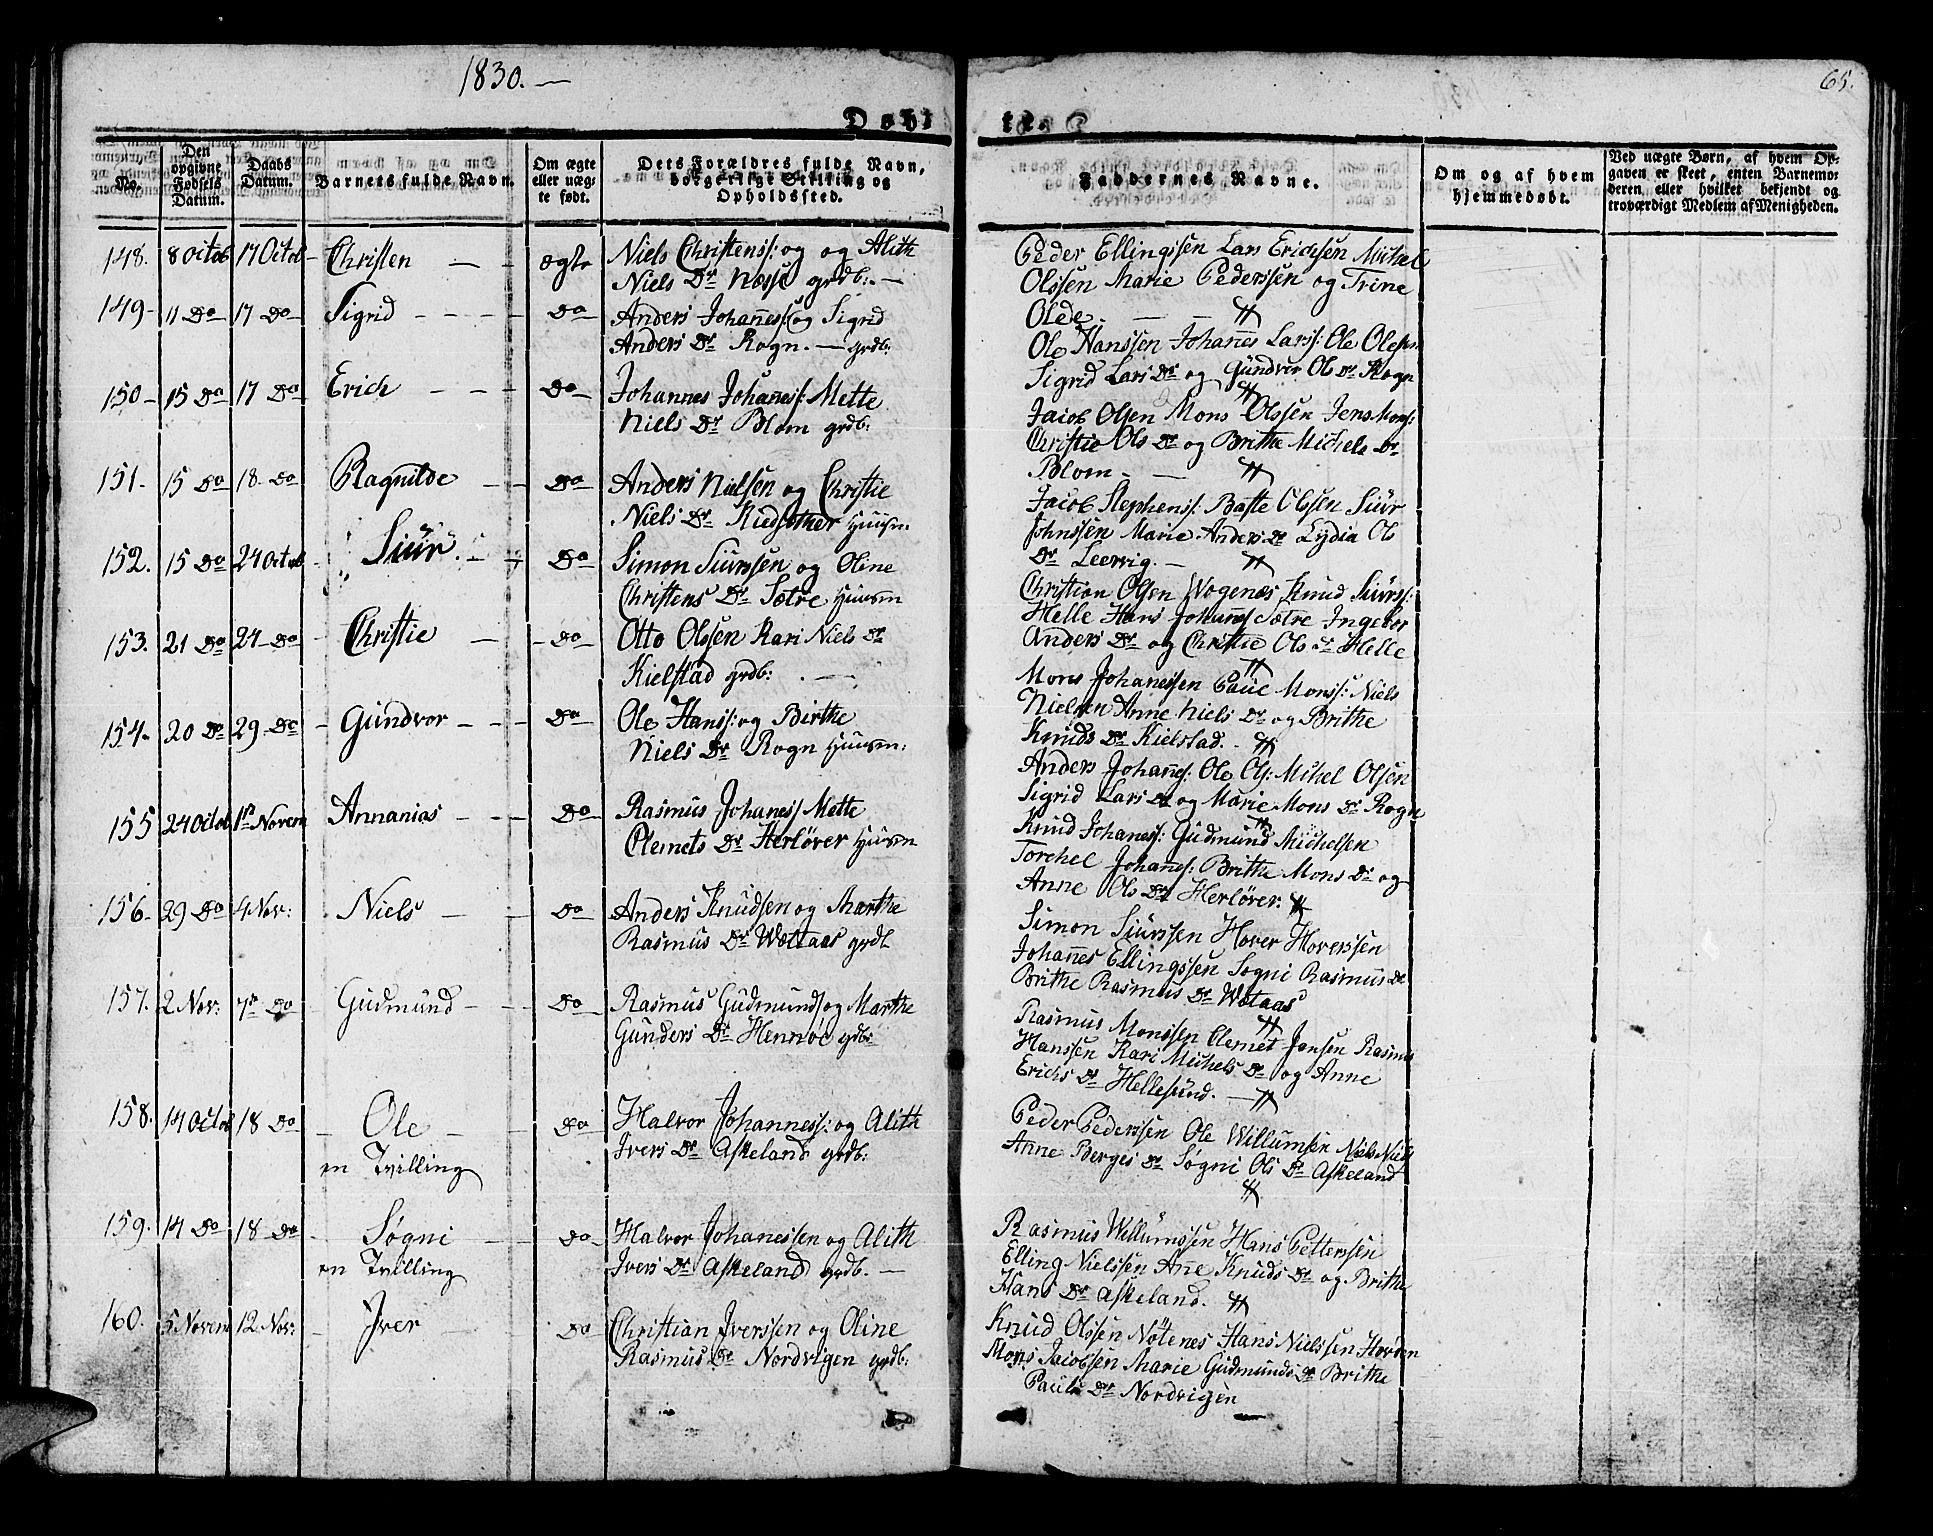 1830. —
65.
Døbte.
No.
Den opgivne Fødsels Datum.
Daabs Datum.
Barnets fulde Navn.
Om ægte eller uægte født.
Dets Forældres fulde Navn, borgerlige Stilling og Opholdssted.
Faddernes Navne.
Om og af hvem hjemmedøbt.
Ved uægte Børn, af hvem Opgaven er skeet, enten Barnemoderen eller hvilket bekjendt og troværdigt Medlem af Menigheden.
148. 8 Octob 17 Octob - Christen — — ægte Niels Christenss: og og Alith
Niels Dr Næsse grdb: —
Peder Ellingssen Lars Erichsen Michel
Olssen Marie Pederssen og Trine
Olede. — —
149- 11 Do 17 Do Sigrid - - - - Do Anders Johaness og Sigrid
Anders Dr Rogn. — grdb:
Ole Hanssen Johanes Larss: Ole Olesen
Sigrid Lars Dr og Gundvor Ols Dr Rogn
150- 15 Do 17 Do Erich - - - Do Johannes Johaness: Mette
Niels Dr Blom grdb:
Jacob Olsen Mons Olssen Jens Mons:
Christie Ols Dr og Brithe Michels Dr
Blom - —
151- 15 Do 18- Do Ragnilde - - Do Anders Nielsen og Christie
Niels Dr Huusm:
Jacob Stephens: Baste Olssen Siur
Johnssen Marie Anders Dr Lydia Ols
Dr Leervig. —
152. 15 Do 24 Octob - Siur. - - Do Simon Siurssen og Oline
Christens Dr Sætre Huusm
Christian Olsen Wogenæs Knud Siurss:
Helle Hans Johanes Sætre Ingebor
Anders Dr og Christie Ols Dr Helle
153. 21 Do 24 Do - Christie — - Do Otto Olssen Kari Niels Dr
Kielstad grdb: . —
Mons Johanessen Paul Monss: Niels
Nielsen Anne Niels Dr og Brithe
Knuds Dr Kielstad. -
154. 20 Do 29 Do - Gundvor - - - Do Ole Hanss: og Birthe
Niels Dr Rogn Huusm:
Anders Johanes: Ole Ols: Mikel Olsen
Sigrid Lars Dr og Marie Mons Dr Rogn
155 24 Octob 1st Novem Annanias - - - Do Rasmus Johaness Mette
Clemets Dr Herløver Huusm
Knud Johaness: Gudmund Michelsen
Torchel Johaness: Brithe Mons Dr og
Anne Ols Dr Herløver.
156- 29 Do 4 Nov: Niels — - Do Anders Knudsen og Marthe
Rasmus Dr Wættaas grdb
Simon Siurssen Hover Hoverssen
Johannes Ellingssen Søgni Rasmus Dr
Brithe Rasmus Dr Wætaas
157. 2 Nov: 7de Do Gudmund - - Do Rasmus Gudmunds og Marthe
Gunders Dr Hennøe grdb:
Rasmus Monssen Clemet Jansen Rasmus
Hanssen Kari Michels Dr og Anne
Erichs Dr Hellesund. —
158. 14 Octob 18 Do - Ole - - Do Halvor Johanness: og Alith
en Tvilling
Ivers Dr Askeland grdb:
Peder Pederssen Ole Willumsen Niels Niels
Anne Berges Dr Søgni Ols Dr Askeland
159. 14 Do 18 Do - Søgni — Do Halvor Johanessen og Alith
en Tvilling
Ivers Dr Askeland grdb. —
Rasmus Willumssen Hans Petterssen
Elling Nielssen Ane Knuds Dr og Brithe
Hans Dr Askeland.
160. 5 Novem 12 Nov: - Iver — - Do Christian Iverssen og Oline
Rasmus Dr Nordvigen grdb:
Knud Olssen Nötenes Hans Nielssen Horden
Mons Jacobssen Marie Gudmunds Dr Brithe
Pauls Dr Nordvigen